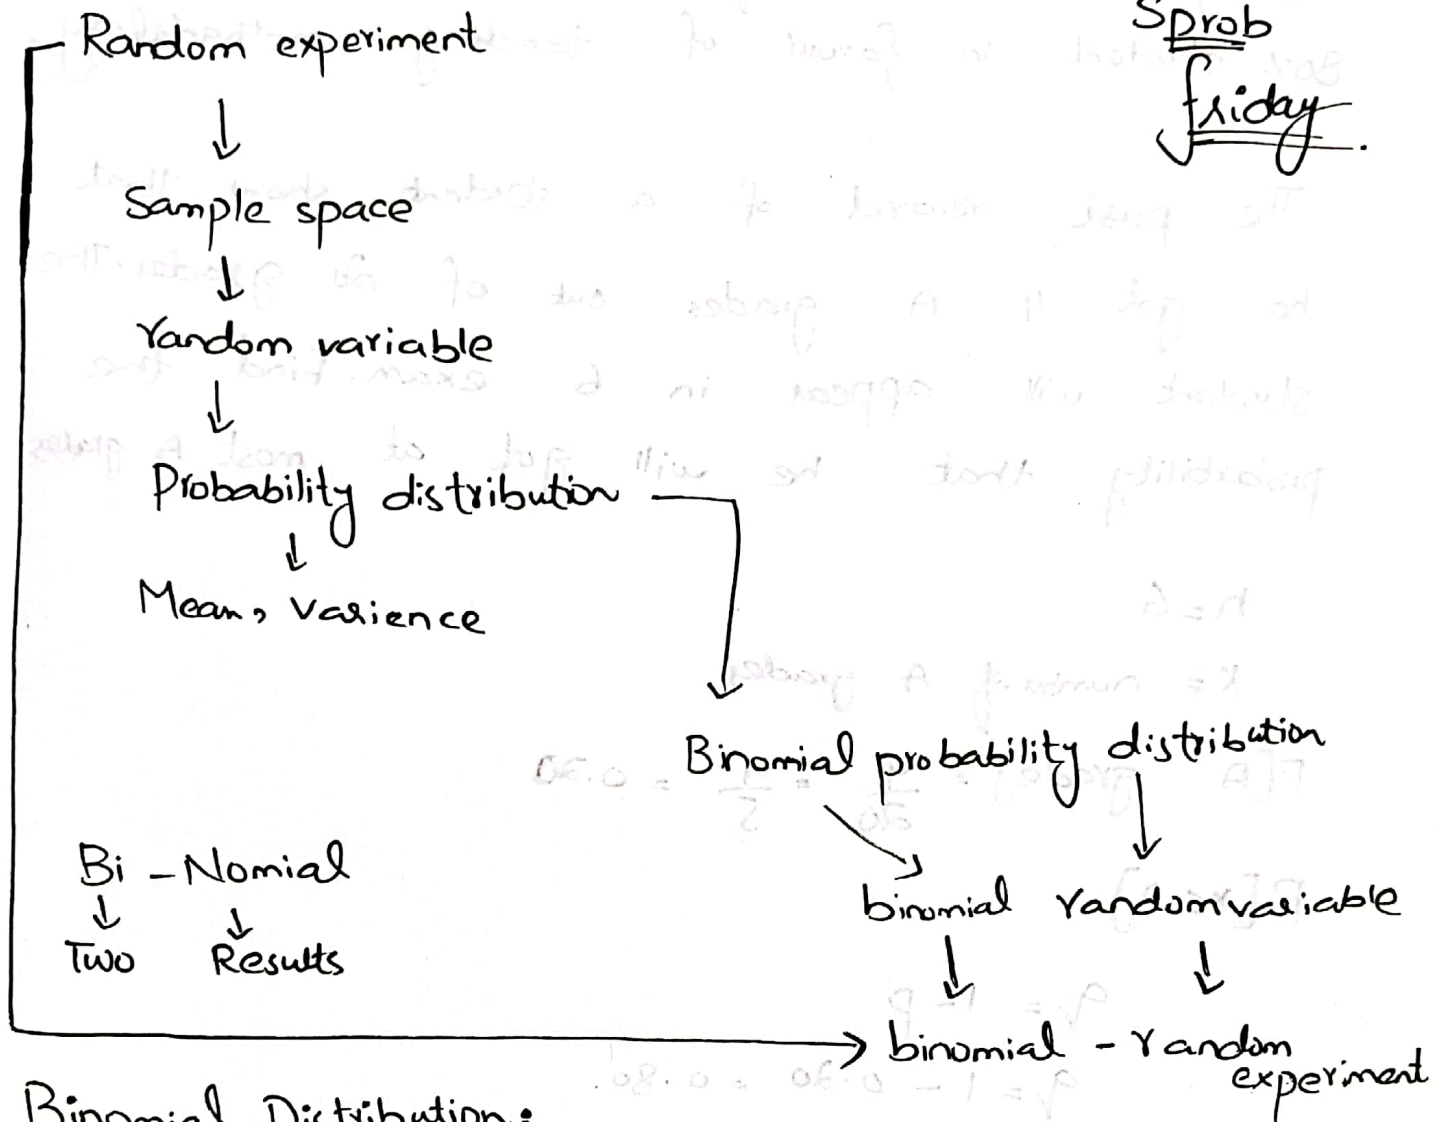 Sprob
friday.
Random experiment
↓
Sample space
↓
random variable
↓
Probability distribution
↓
Mean, Varience
Binomial probability distribution
Bi - Nomial
↓ ↓
Two Results
binomial random variable
↓ ↓
binomial - random experiment
Binomial Distribution: